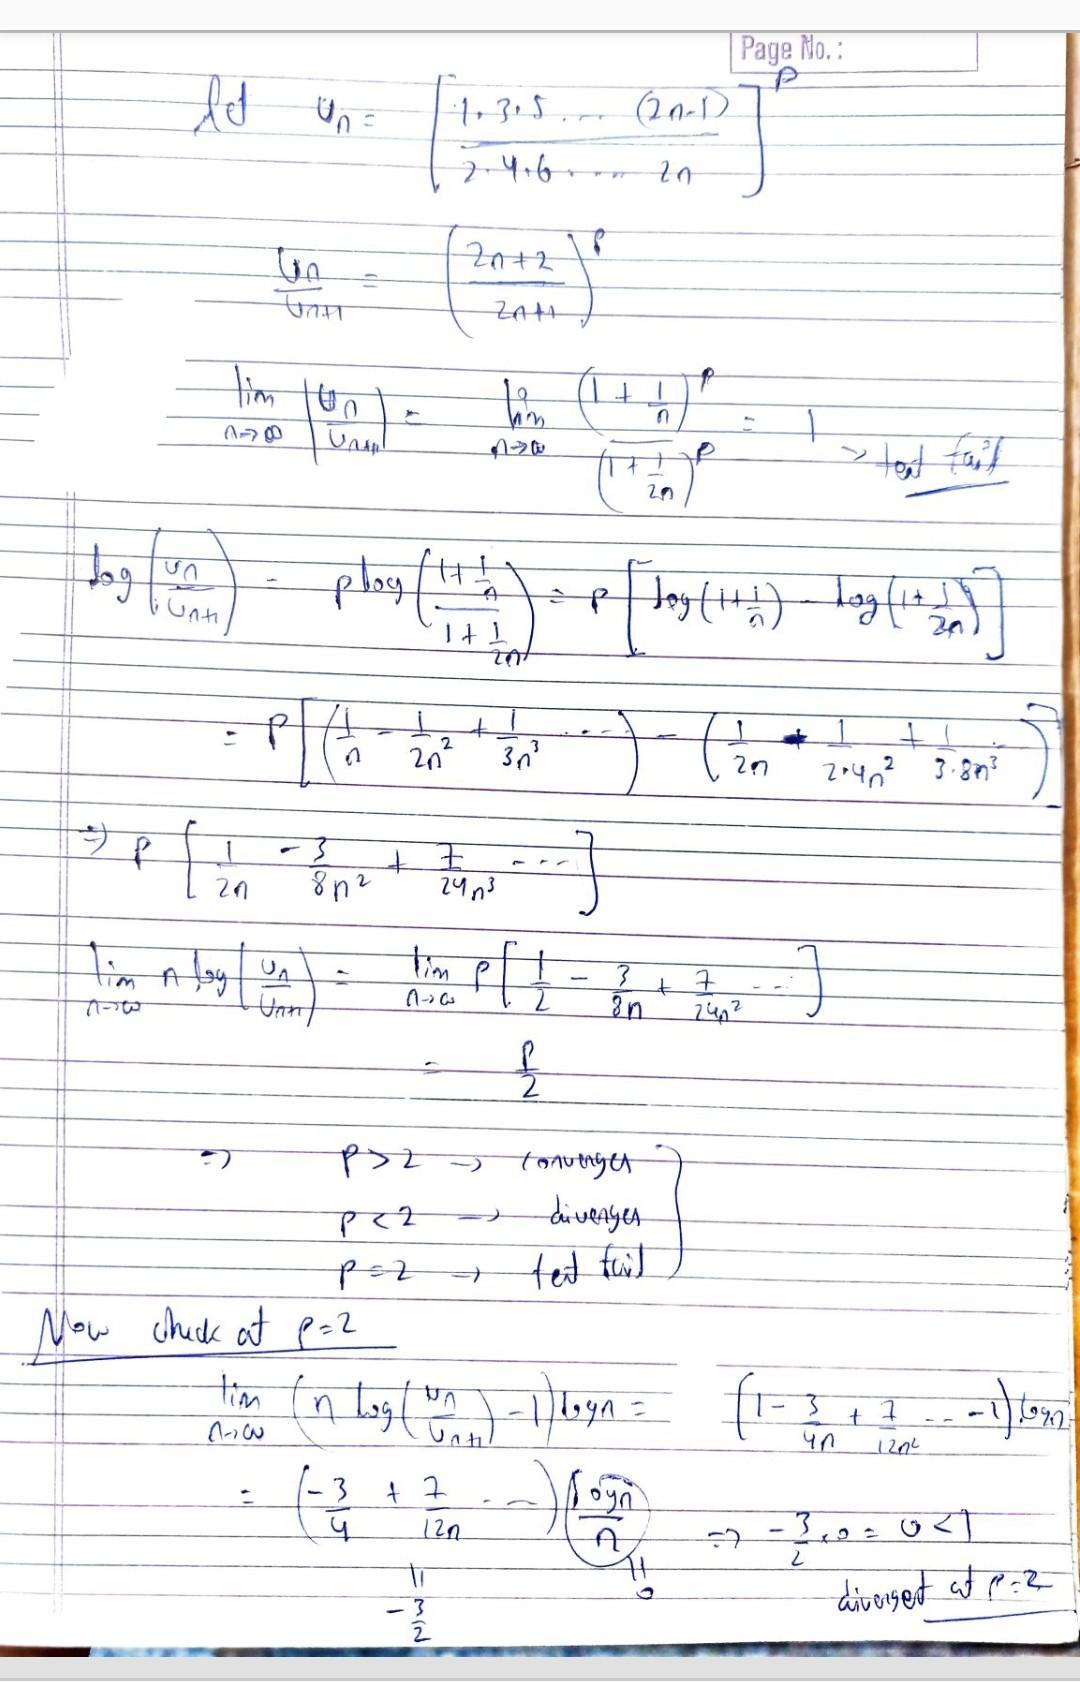 Page No. :
let u_n = [1.3.5.... (2n-1) / 2.4.6..... 2n]^p
u_n / u_{n+1} = (2n+2 / 2n+1)^p
lim n→∞ (u_n / u_{n+1}) = lim n→∞ (1 + 1/n)^p / (1 + 1/2n)^p = 1 → test fail
log (u_n / u_{n+1}) = p log ((1 + 1/n) / (1 + 1/2n)) = p [log (1 + 1/n) - log (1 + 1/2n)]
= p [(1/n - 1/2n² + 1/3n³ ....) - (1/2n - 1/2.4n² + 1/3.8n³ ..)]
⇒ p [1/2n - 3/8n² + 7/24n³ ---]
lim n→∞ n log (u_n / u_{n+1}) = lim n→∞ p [1/2 - 3/8n + 7/24n² ---]
= p/2
⇒ p > 2 → converges
p < 2 → diverges
p = 2 → test fail
Now check at p=2
lim n→∞ (n log (u_n / u_{n+1}) - 1) log n = (1 - 3/4n + 7/12n² .. - 1) log n
= (-3/4 + 7/12n ---) (log n / n) ⇒ -3/2 × 0 = 0 < 1
|| -3/2 || 0 diverget at p=2